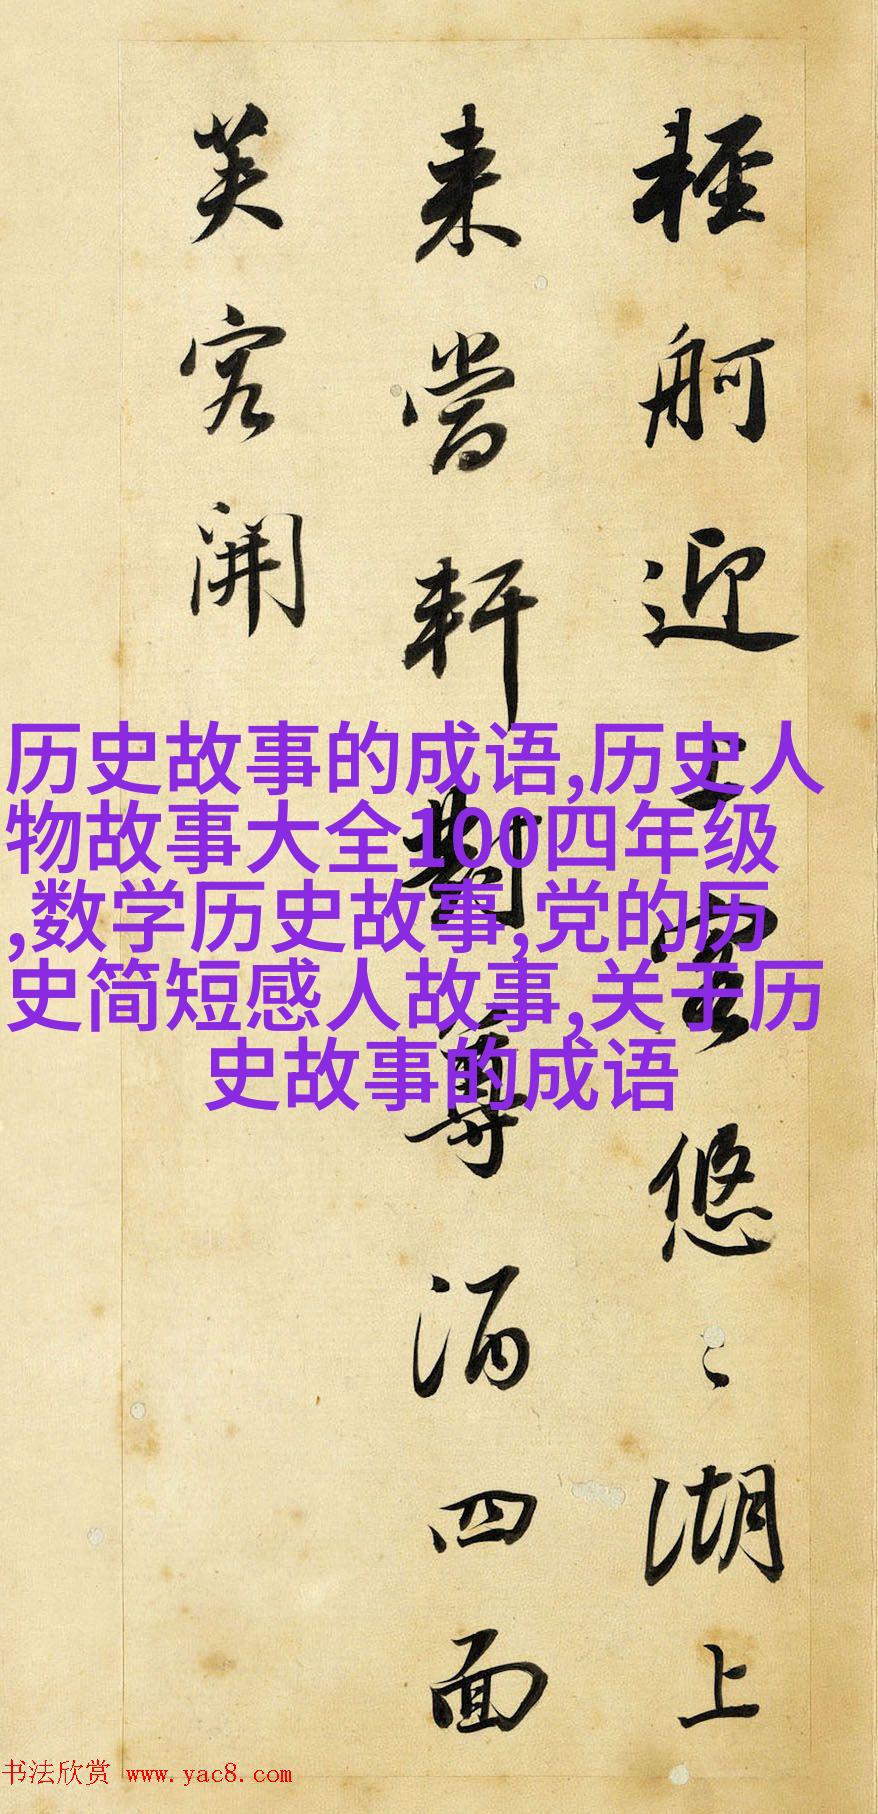 輕舸迎上客悠〻湖上
来當軒對尊酒四面
芙容開
历史故事的成语,历史人
物故事大全100四年级
,数学历史故事,党的历
史简短感人故事,关于历
史故事的成语
书法欣赏 www.yac8.com